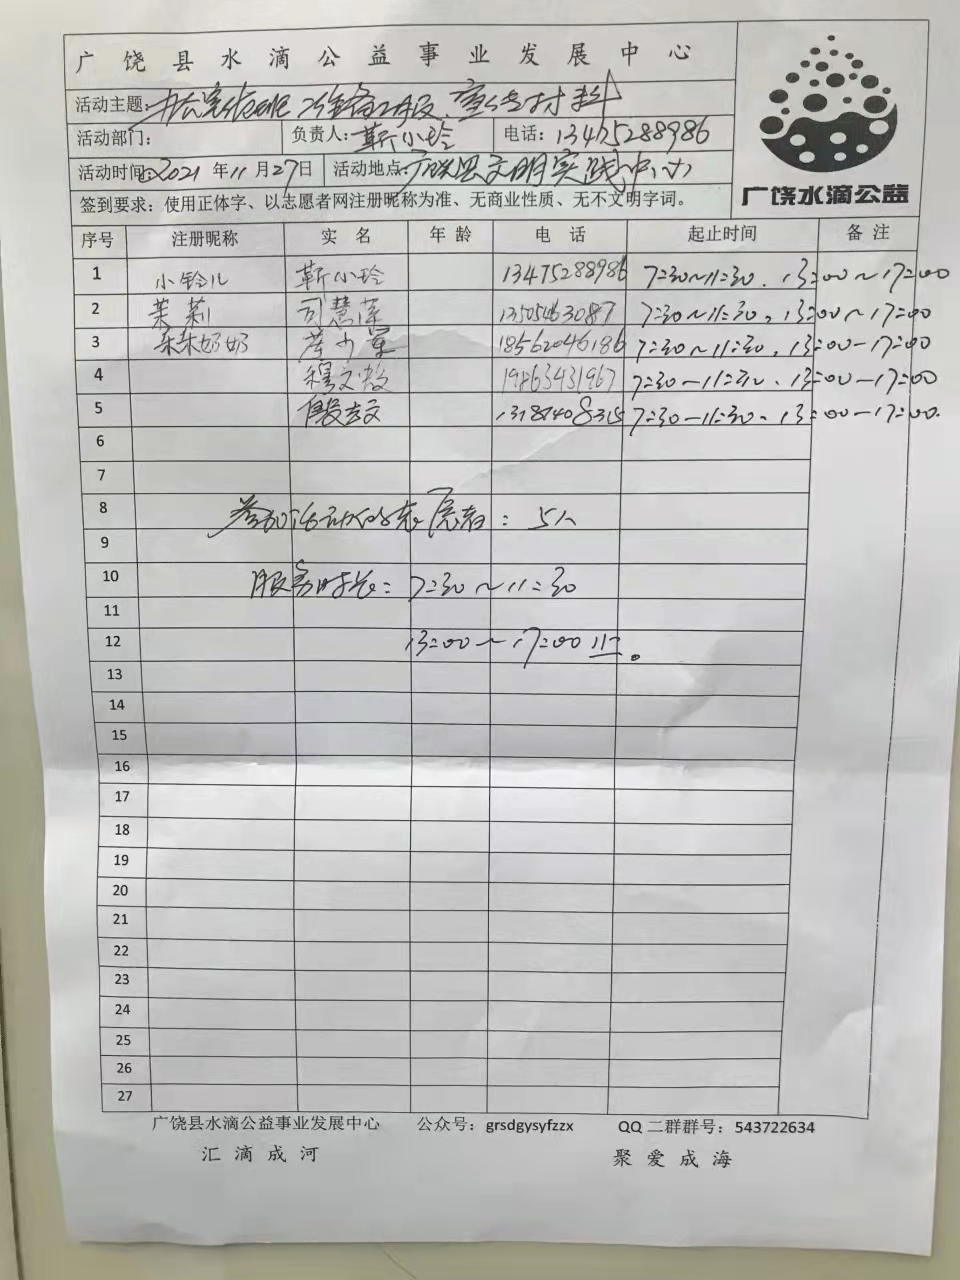 广饶县水滴公益事业发展中心
活动主题:
活动部门: 负责人: 靳小玲 电话: 13475288986
活动时间: 2021 年 11 月 27 日 活动地点: 广饶县文明实践中心
广饶水滴公益
签到要求：使用正体字、以志愿者网注册昵称为准、无商业性质、无不文明字词。
序号 注册昵称 实 名 年 龄 电 话 起止时间 备 注
1 小铃儿 靳小玲 13475288986 7:30~11:30. 13:00~17:00
2 茉莉 13505463087 7:30~11:30, 13:00~17:00
3 朵朵奶奶 18562046186 7:30~11:30, 13:00-17:00
4 穆文 19863431967 7:30-11:30、13:00-17:00
5 7:30-11:30- 13:00-17:00.
6
7
8 参加活动的志愿者: 5人
9
10 服务时长: 7:30~11:30
11
12 13:00~17:00止。
13
14
15
16
17
18
19
20
21
22
23
24
25
26
27
广饶县水滴公益事业发展中心 公众号：grsdgysyfzzx QQ 二群群号：543722634
汇 滴 成 河 聚 爱 成 海